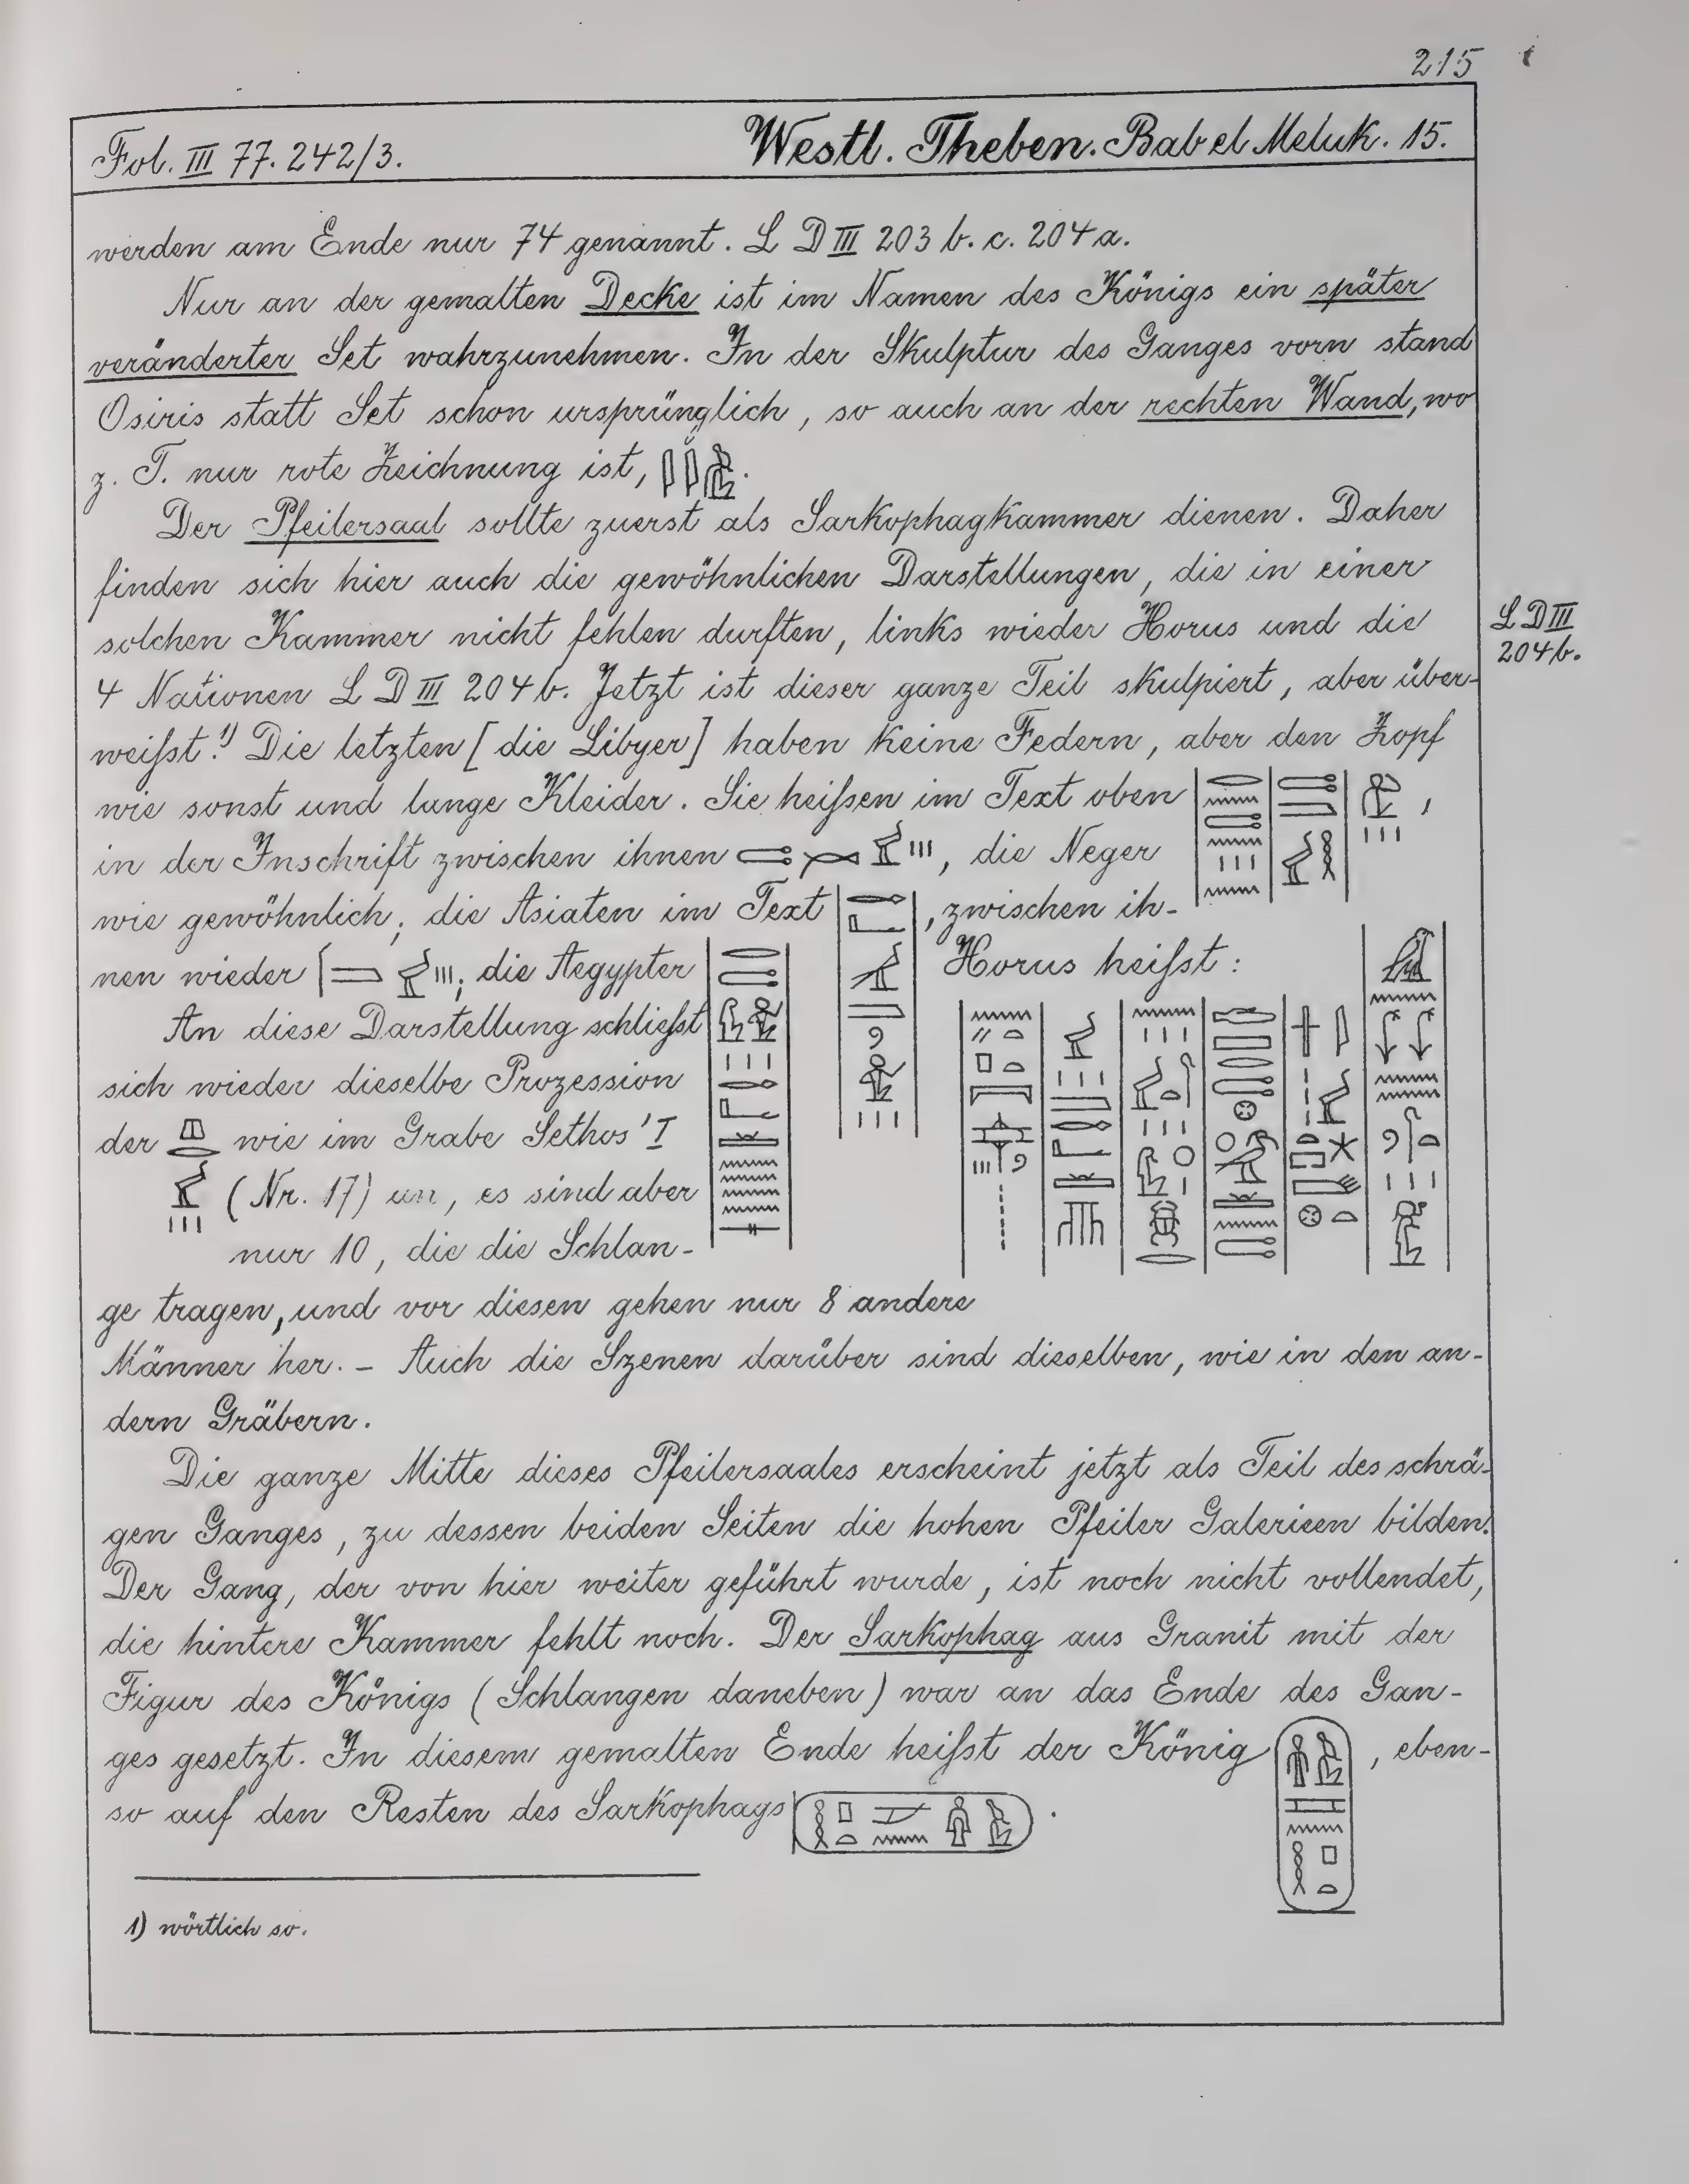 215
Fol. III 77. 242/3. Westl. Theben. Bab el Meluk. 15.
werden am Ende nur 74 genannt. L D III 203 b. c. 204 a.
Nur an der gemalten Decke ist im Namen des Königs ein später
veränderter Set wahrzunehmen. In der Skulptur des Ganges vorn stand
Osiris statt Set schon ursprünglich, so auch an der rechten Wand, wo
z. T. nur rote Zeichnung ist, .
Der Pfeilersaal sollte zuerst als Sarkophagkammer dienen. Daher
finden sich hier auch die gewöhnlichen Darstellungen, die in einer
solchen Kammer nicht fehlen durften, links wieder Horus und die
L D III
204 b.
4 Nationen L D III 204 b. Jetzt ist dieser ganze Teil skulpiert, aber über-
weißt.¹⁾ Die letzten [die Libyer] haben keine Federn, aber den Zopf
wie sonst und lange Kleider. Sie heißen im Text oben ,
in der Inschrift zwischen ihnen , die Neger
wie gewöhnlich, die Asiaten im Text , zwischen ih-
nen wieder ; die Aegypter
Horus heißt :
An diese Darstellung schließt
sich wieder dieselbe Prozession
der wie im Grabe Sethos' I
(Nr. 17) an, es sind aber
nur 10, die die Schlan-
ge tragen, und vor diesen gehen nur 8 andere
Männer her. – Auch die Szenen darüber sind dieselben, wie in den an-
dern Gräbern.
Die ganze Mitte dieses Pfeilersaales erscheint jetzt als Teil des schrä-
gen Ganges, zu dessen beiden Seiten die hohen Pfeiler Galerieen bilden.
Der Gang, der von hier weiter geführt wurde, ist noch nicht vollendet,
die hintere Kammer fehlt noch. Der Sarkophag aus Granit mit der
Figur des Königs (Schlangen daneben) war an das Ende des Gan-
ges gesetzt. In diesem gemalten Ende heißt der König , eben-
so auf den Resten des Sarkophags .
1) wörtlich so.